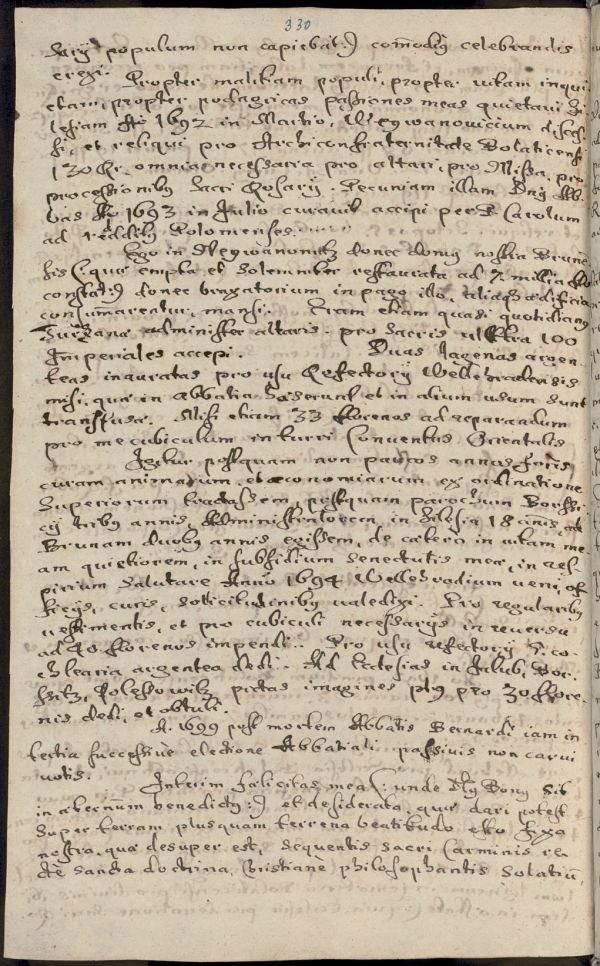 330
populum non capiebat:) com̄odiq celebrandis
erexi.
Propter malitiam populi, propter vitam inqui
etam, propter podagricas passiones meas quietavi Si
lesiam Aō 1692 in Martio,
si, et reliqui pro Archiconfraternitate Bolaticensi
130 Rr. omnia necessaria pro altari, pro Missa, pro
processionibq Sacri Rosarÿ. Pecuniam illam Dnq Ab.
bas Aō 1693 in Julio curavit accipi per P. Carolum
ad
Ego in donec domq nostra Brune
sis (: quæ empta et solemniter restaurata ad 7 millia flo
constat:) donec braxatorium in pago illo, aliaqȝ ædificia
consumarentur, mansi. Eram etiam quasi quotidianq
administer altaris. pro sacris ultra 100
Imperiales accepi. Duas lagenas argen
teas inauratas pro usu Refectorÿ Wellehradensis
misi, quæ in Abbatia et in alium usum sunt
transfusæ. Misi etiam 33 florenos ad reparandum
pro me cubiculum in turri Conventus Orientalis
Igitur postquam non paucos annos
curam animarum, et œconomiarum ex ordinatione
Superiorum tractassem, postquam parochum
cÿ tribq annis, Administratorem in Silesia 18 anis, ad
Brunam duobq annis egissem, de cætero in vitam me
am quietiorem, in subsidium senectutis meæ, in res-
pirium salutare Anno 1694 Wellehradium veni, of
ficÿs, curis, solicitudinibq valedixi. Pro regularibq
vestimentis, et pro cubiculi necessarÿs in reversu
ad 40 florenos impendi. Pro usu refectorÿ 5. co-
chlearia argentea dedi. Ad Ecclesias in Jalub, Bor.
schitz, Polessowitz pictas imagines plq pro 30 flore-
nis dedi, et obtuli.
A. 1699 post mortem Abbatis Bernardi iam in
tertia successive electione Abbatiali passivis non carui
votis.
Interim fælicitas mea (: unde Dnq Bonq sit
in æternum benedictq :) et desiderata, quæ dari potest
super terram plusquam terrena beatitudo esto fixa
nostra, quæ desuper est, sequentis sacri Carminis re
de sancta doctrina, Christianè philosophantis solatiū,